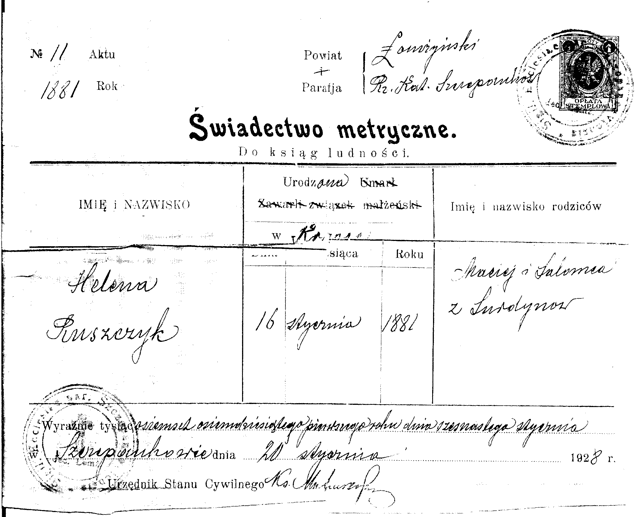 № 11 Aktu
1881 Rok
Powiat Łomżyński
Parafja Rz. Kat. Szczepankow
OPŁATA
STEMPLOWA
Świadectwo metryczne.
Do ksiąg ludności.
IMIĘ i NAZWISKO
Urodzona Umarł
Zawarli związek małżeński
w
Imię i nazwisko rodziców
Dnia siąca Roku
Helena
Ruszczyk
16 stycznia 1881
Maciej i Salomea
z Surdynow
Wyraźnie tysiąc osiemset osiemdziesiątego pierwszego roku dnia szesnastego stycznia
Szczepankowie dnia 20 stycznia 1928 r.
Urzędnik Stanu Cywilnego Ks.